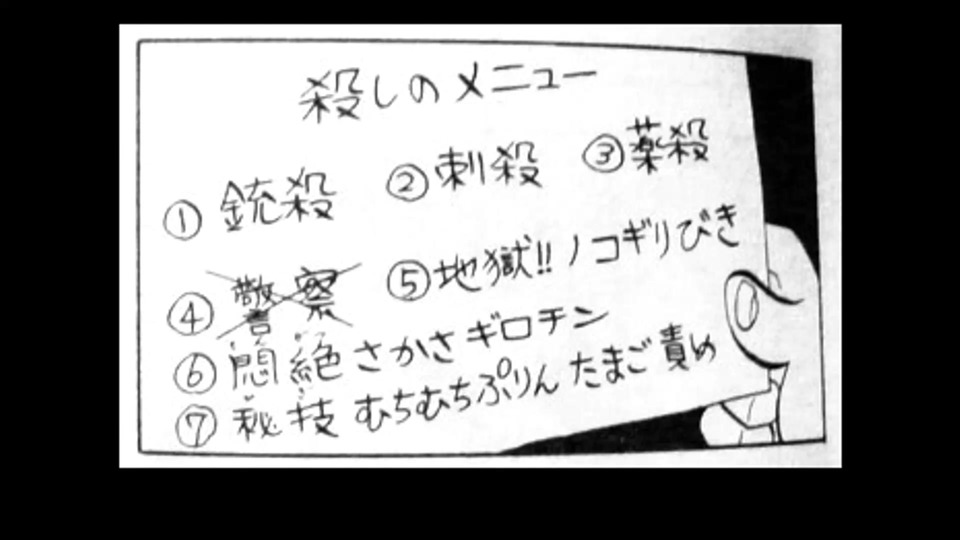 殺しのメニュー
① 銃殺 ② 刺殺 ③ 薬殺
④ 警察 ⑤ 地獄!! ノコギリびき
⑥ 悶絶さかさギロチン
⑦ 秘技 むちむちぷりん たまご責め